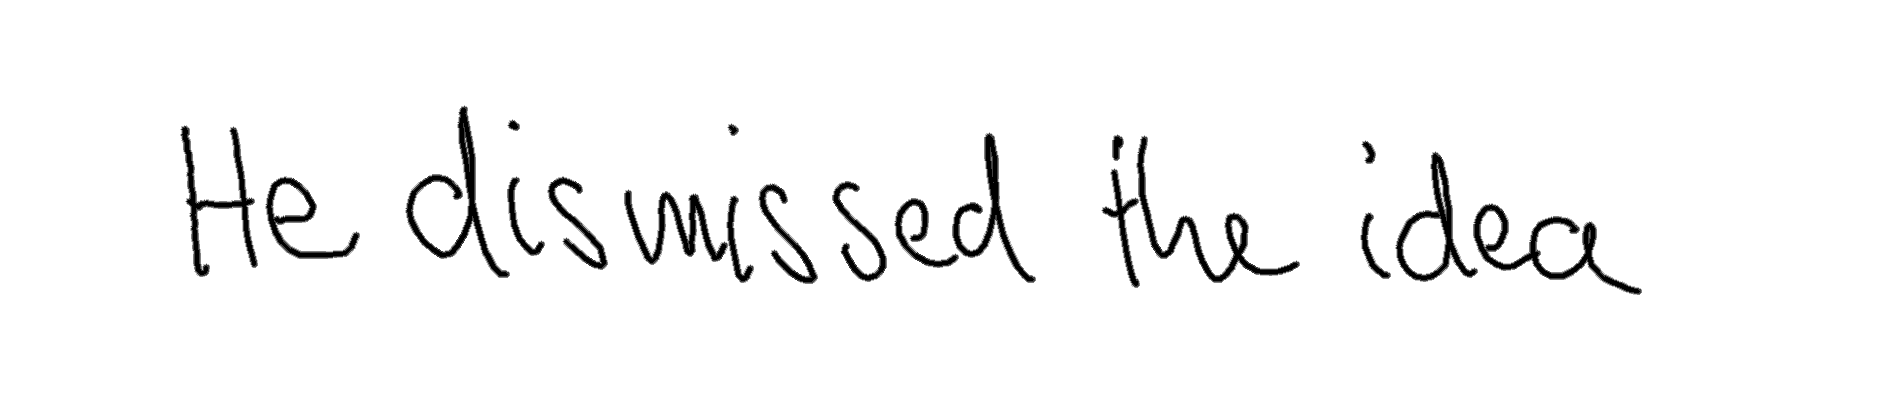 He dismissed the idea